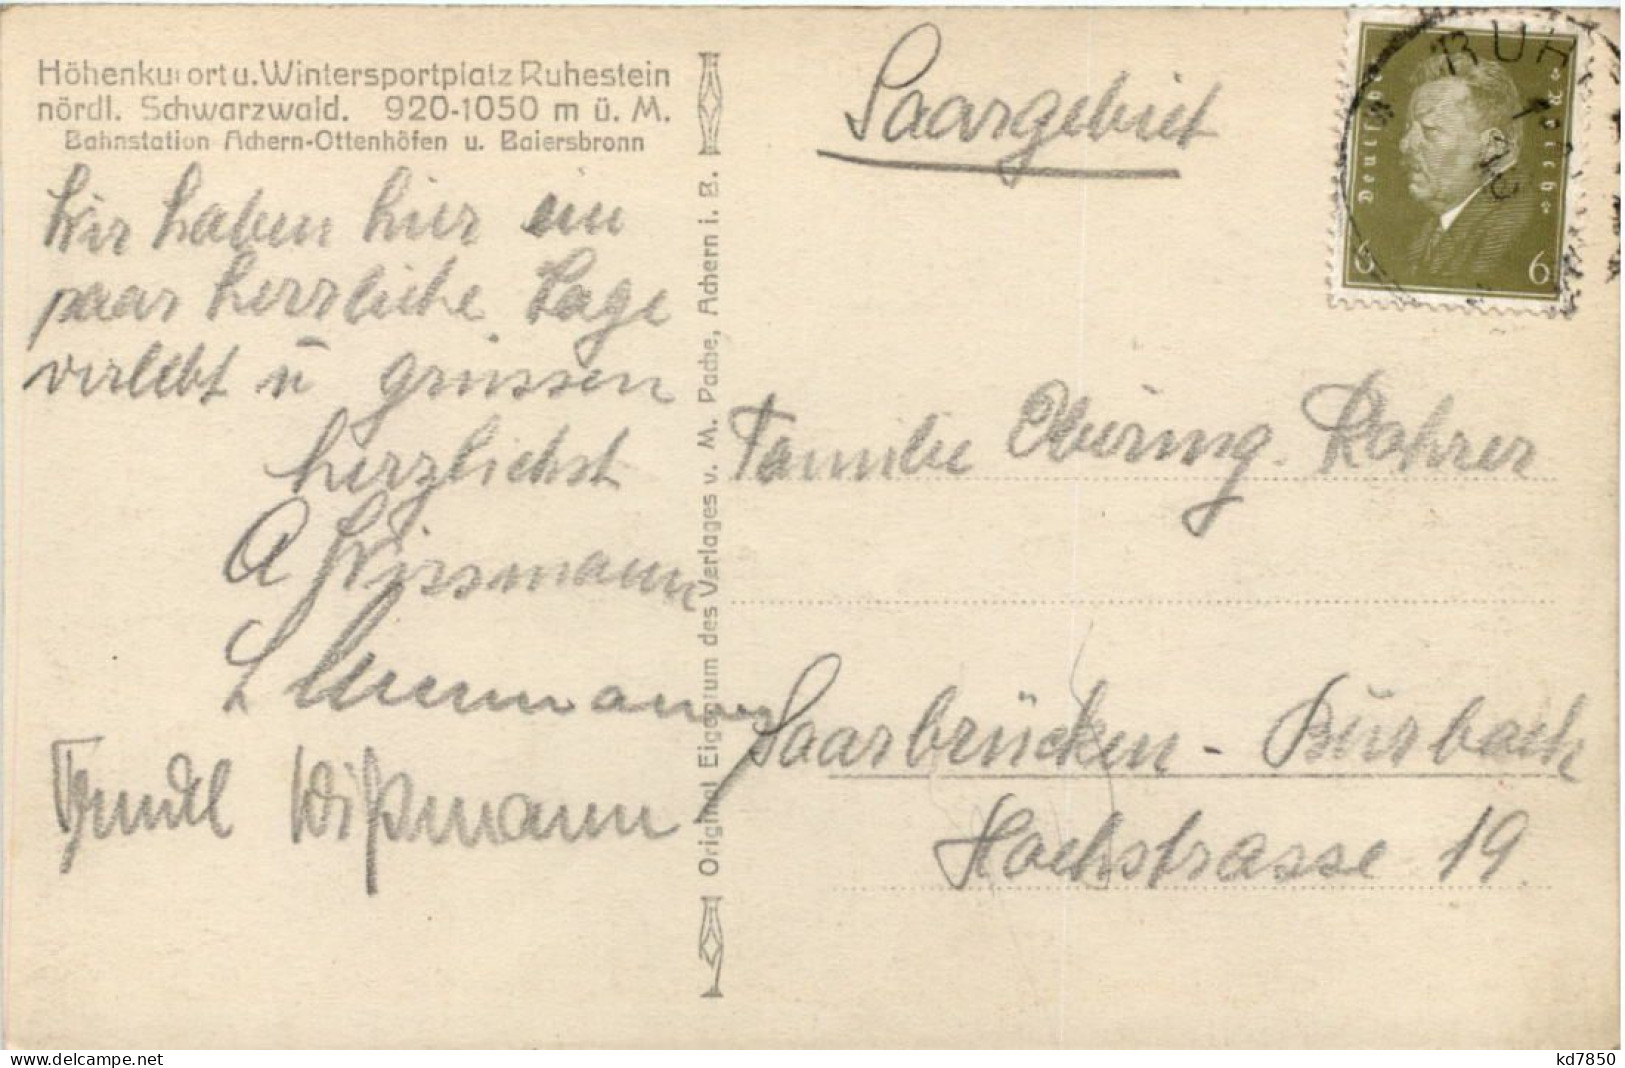 Höhenkurort u. Wintersportplatz Ruhestein
nördl. Schwarzwald. 920-1050 m ü. M.
Bahnstation Achern-Ottenhöfen u. Baiersbronn
Wir haben hier ein
paar herrliche Tage
verlebt u grüssen
herzlichst
A Wissmann
L
Wißmann
Original Eigentum des Verlages v. M. Pache, Achern i. B.
Saargebiet
Deutsches Reich
6 6
RUH
Familie Obering. Rohrer
Saarbrücken - Burbach
Hochstrasse 19
www.delcampe.net
kd7850